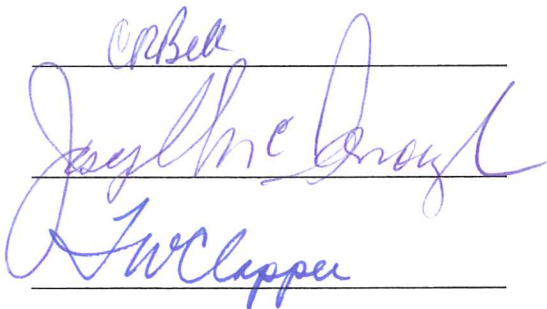 CRBell
Joseph Mc Donough
FWClapper